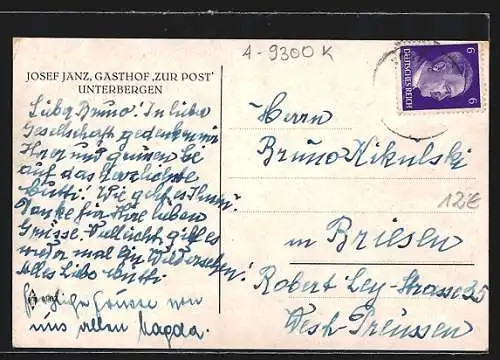 4-9300K
JOSEF JANZ, GASTHOF ‚ZUR POST'
UNTERBERGEN
DEUTSCHES REICH
6 6
Lieber Bruno! In lieber
Gesellschaft gedenken wir
Ihrer und grüssen Sie
auf das herzlichste
Wie geht es Ihnen?
Danke für Ihre lieben
Grüsse. Vielleicht gibt es
wieder mal ein Wiedersehen!
Alles Liebe
Herzliche Grüsse von
uns allen Magda.
Herrn
Bruno Nikulski
12€
in Briesen
Robert Ley-Strasse 35
West-Preussen